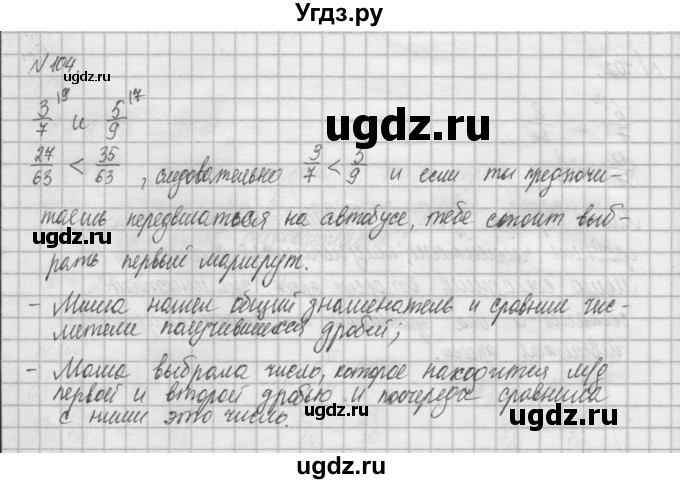 Угдз.ру
№104.
3/7 |9 и 5/9 |7
27/63 < 35/63, следовательно 3/7 < 5/9 и если ты предпочи-
таешь передвигаться на автобусе, тебе стоит выб-
рать первый маршрут.
- Миша нашел общий знаменатель и сравнил чис-
лители получившихся дробей;
- Маша выбрала число, которое находится м/д
первой и второй дробью и поочереди сравнила
с ними это число.
ugdz.ru
ugdz.ru
ugdz.ru
ugdz.ru
ugdz.ru
ugdz.ru
ugdz.ru
ugdz.ru